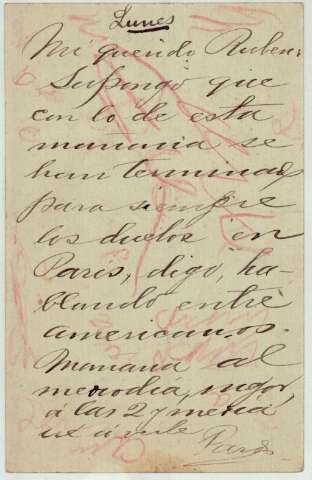 Lunes
Mi querido Ruben:
Supongo que
con lo de esta
manana se
han terminado
para siempre
los duelos en
Paris, digo, ha-
blando entre
americanos.
Manana al
mediodia,
á las 2 y media